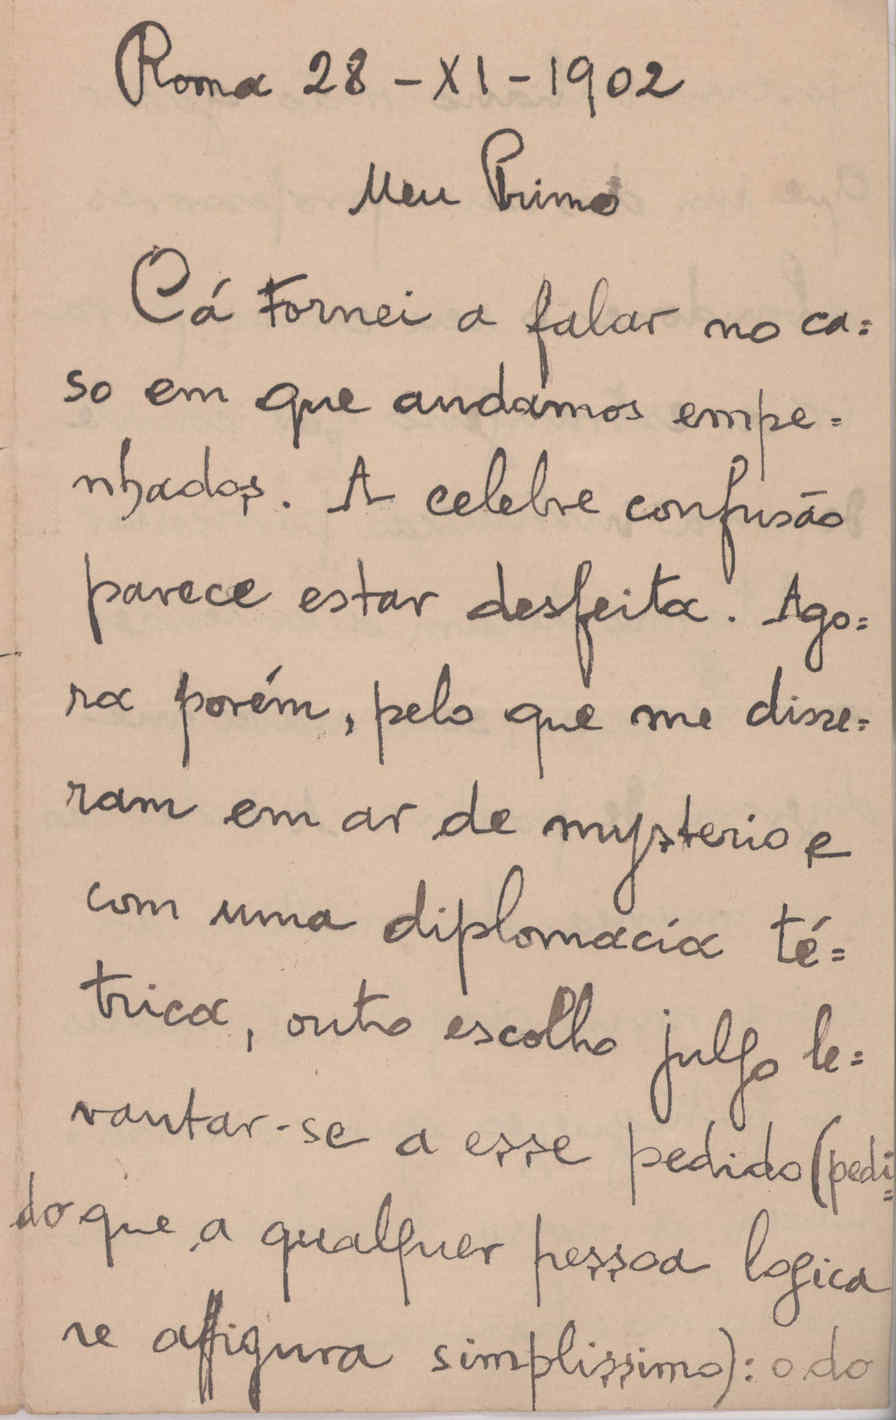 Roma 28-XI-1902
Meu Primo
Cá tornei a falar no ca=
so em que andamos empe=
nhados. A celebre confusão
parece estar desfeita. Ago=
ra porém, pelo que me disse=
ram em ar de mysterio e
com uma diplomacia té=
trica, outro escolho julgo le=
vantar-se a esse pedido (pedi=
do que a qualquer pessoa logica
se affigura simplissimo): o do